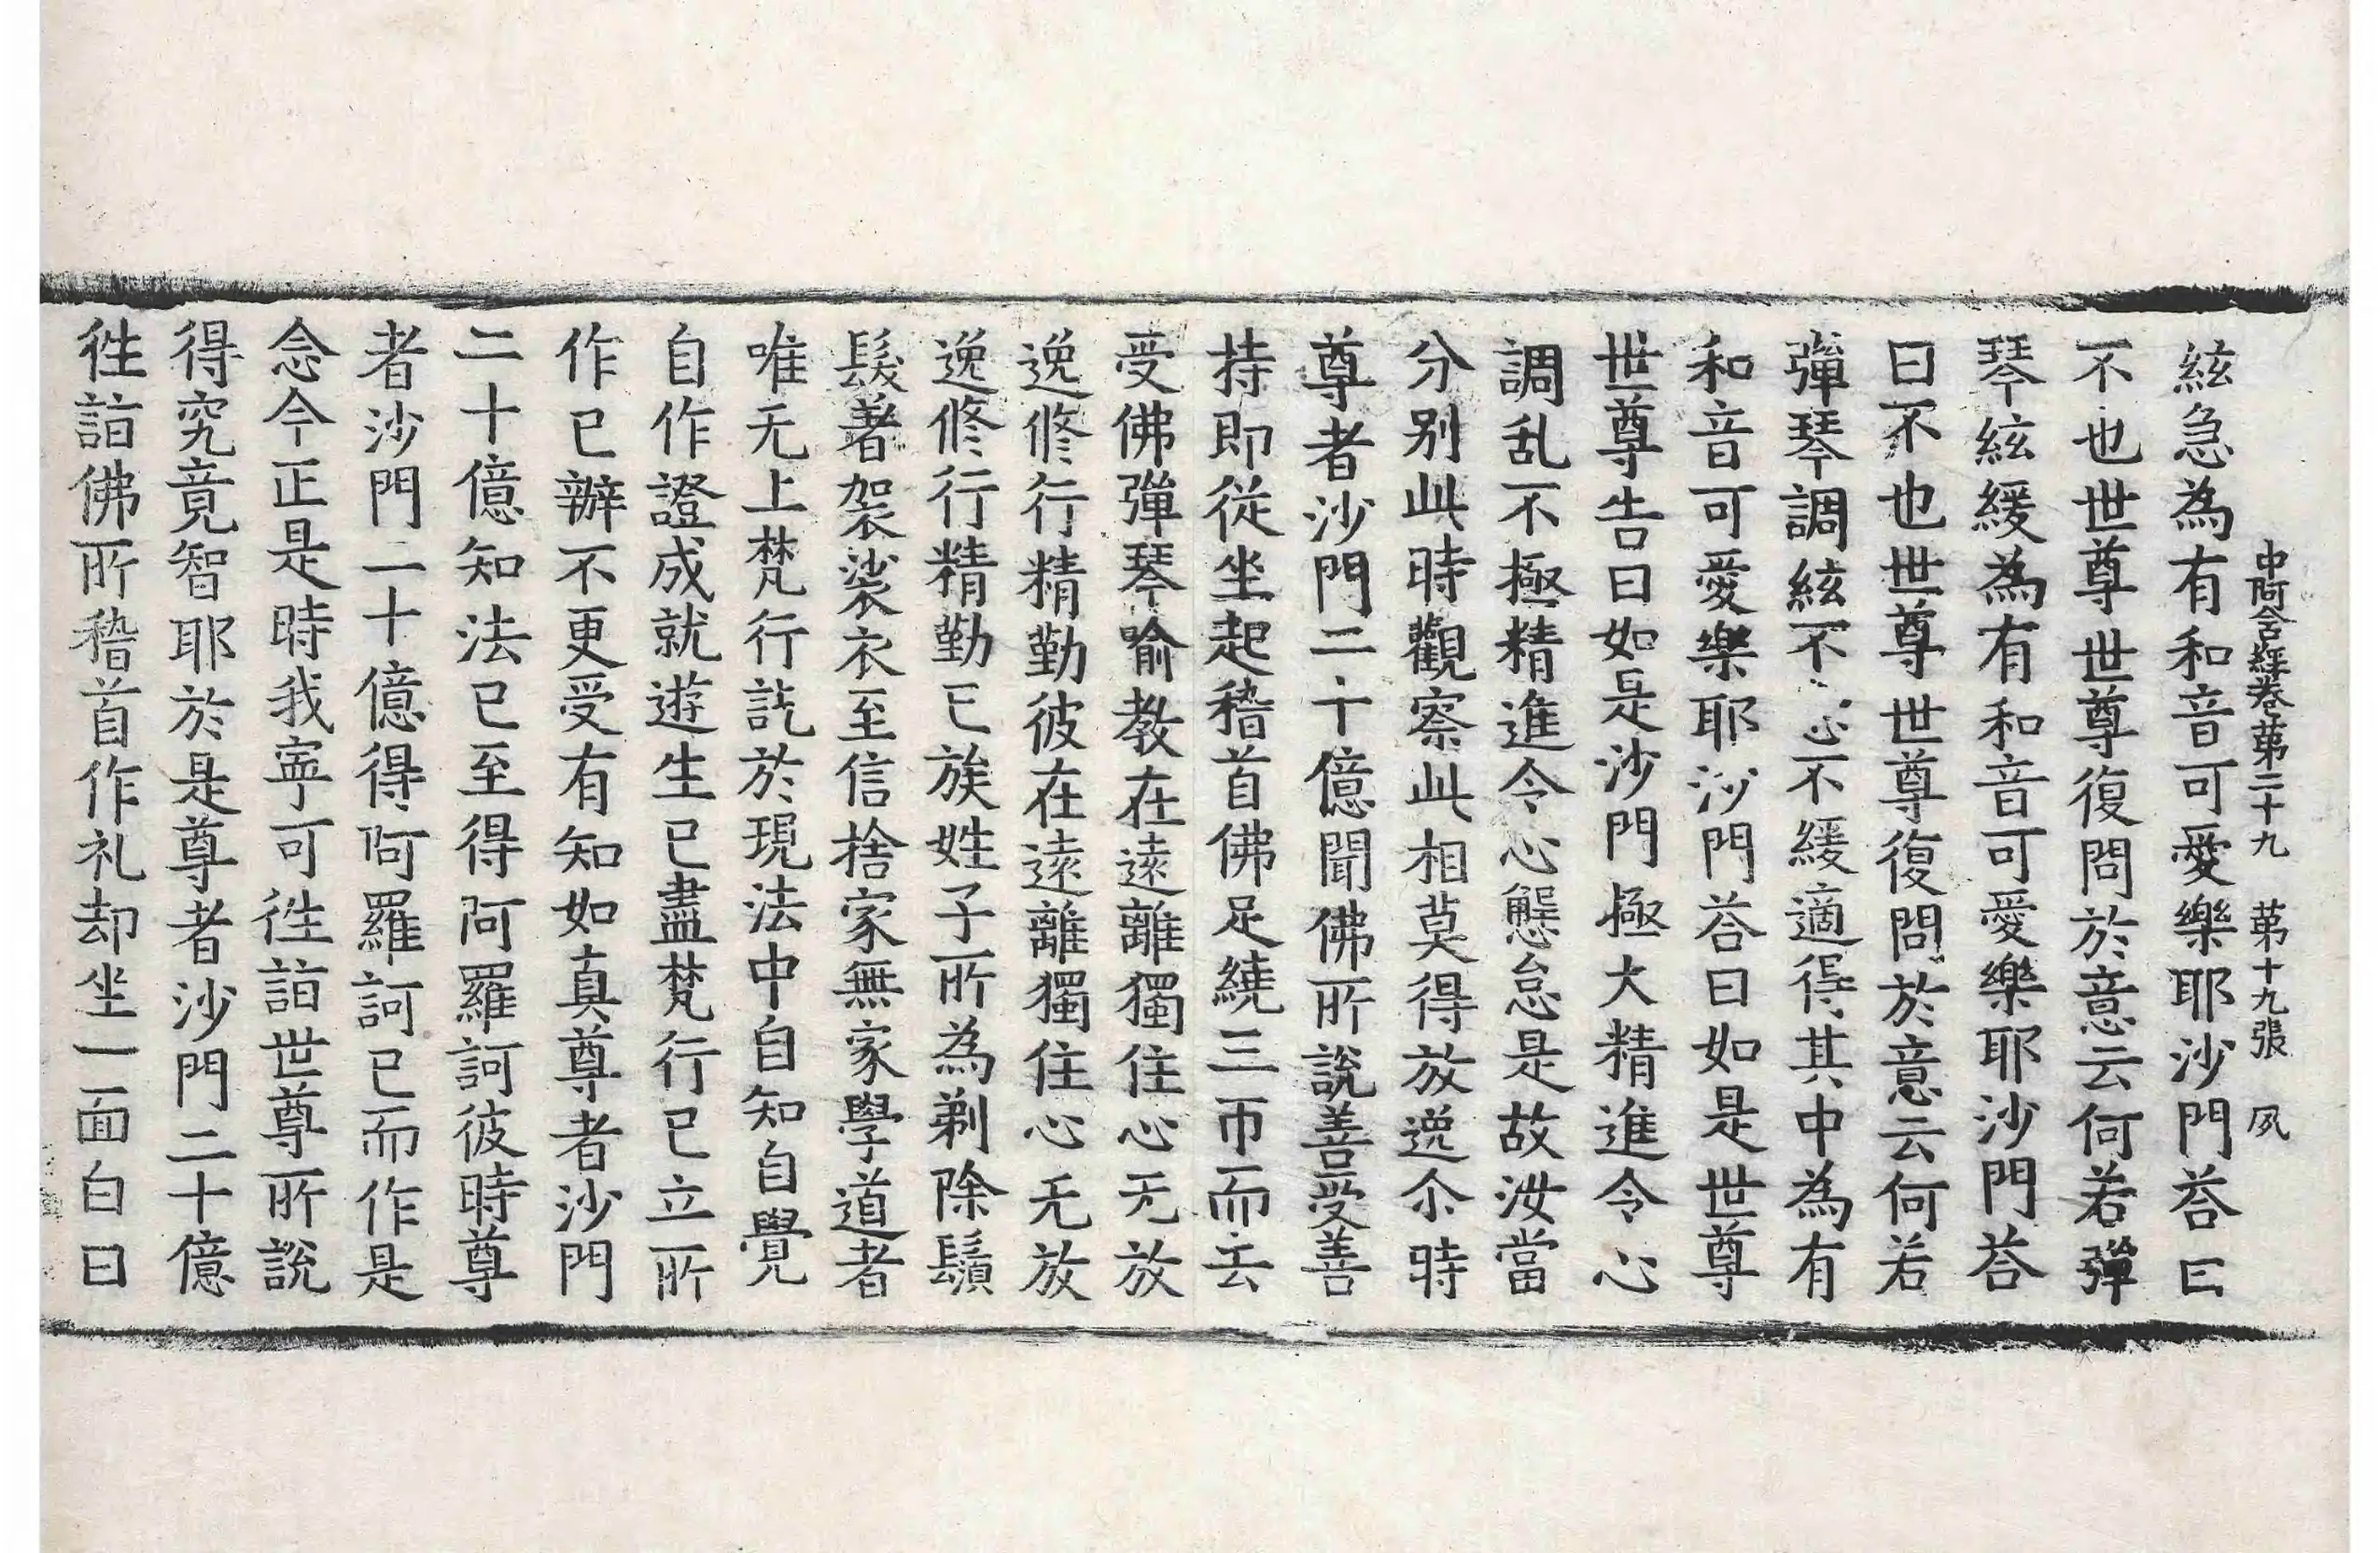 中阿含經卷第二十九 第十九張 夙
絃急為有和音可愛樂耶沙門荅曰
不也世尊世尊復問於意云何若彈
琴絃緩為有和音可愛樂耶沙門荅
曰不也世尊世尊復問於意云何若
彈琴調絃不心不緩適得其中為有
和音可愛樂耶沙門荅曰如是世尊
世尊告曰如是沙門極大精進令心
調乱不極精進令心懈怠是故汝當
分别此時觀察此相莫得放逸尒時
尊者沙門二十億聞佛所說善受善
持即從坐起稽首佛足繞三帀而去
受佛彈琴喻教在遠離獨住心无放
逸修行精勤彼在遠離獨住心无放
逸修行精勤已族姓子所為剃除鬚
髮著袈裟衣至信捨家無家學道者
唯无上梵行訖於現法中自知自覺
自作證成就遊生已盡梵行已立所
作已辦不更受有知如真尊者沙門
二十億知法已至得阿羅訶彼時尊
者沙門二十億得阿羅訶已而作是
念今正是時我寧可徃詣世尊所說
得究竟智耶於是尊者沙門二十億
徃詣佛所稽首作礼却坐一面白曰